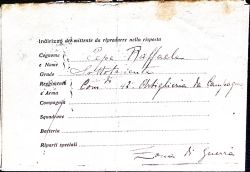 Indirizzo del mittente da riprodurre nella risposta
Cognome e Nome Cepe Raffaele
Grado Sottotenente
Reggimento e Arma Com.do 12a Artiglieria da Campagna
Compagnia
Squadrone
Batteria
Riparti speciali Zona di Guerra